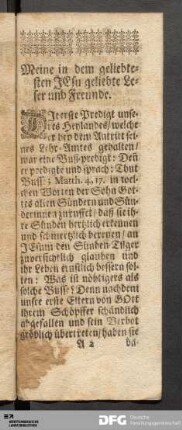 Meine in dem geliebte-
sten JEsu geliebte Le-
ser und Freunde.
DIe erste Predigt unse-
res Heylandes/ welche
er bey dem Antritt sei-
nes Lehr-Amtes gehalten/
war eine Buß-predigt: Deñ
er predigte und sprach: Thut
Buss! Matth. 4, 17. in wel-
chen Worten der Sohn Got-
tes allen Sündern und Sün-
derinnen zuruffet/ daß sie ih-
re Sünden hertzlich erkennen
und schmertzlich bereuen/ an
JEsum den Sünden Tilger
zuversichtlich glauben und
ihr Leben ernstlich bessern sol-
ten: Was ist nöthigers als
solche Buss? Denn nachdem
unsere erste Eltern von GOtt
ihrem Schöpffer schändlich
abgefallen und sein Verbot
gröblich übertreten/ haben sie
A 2 da-
WÜRTTEMBERGISCHE
LANDESBIBLIOTHEK
DFG Deutsche
Forschungsgemeinschaft